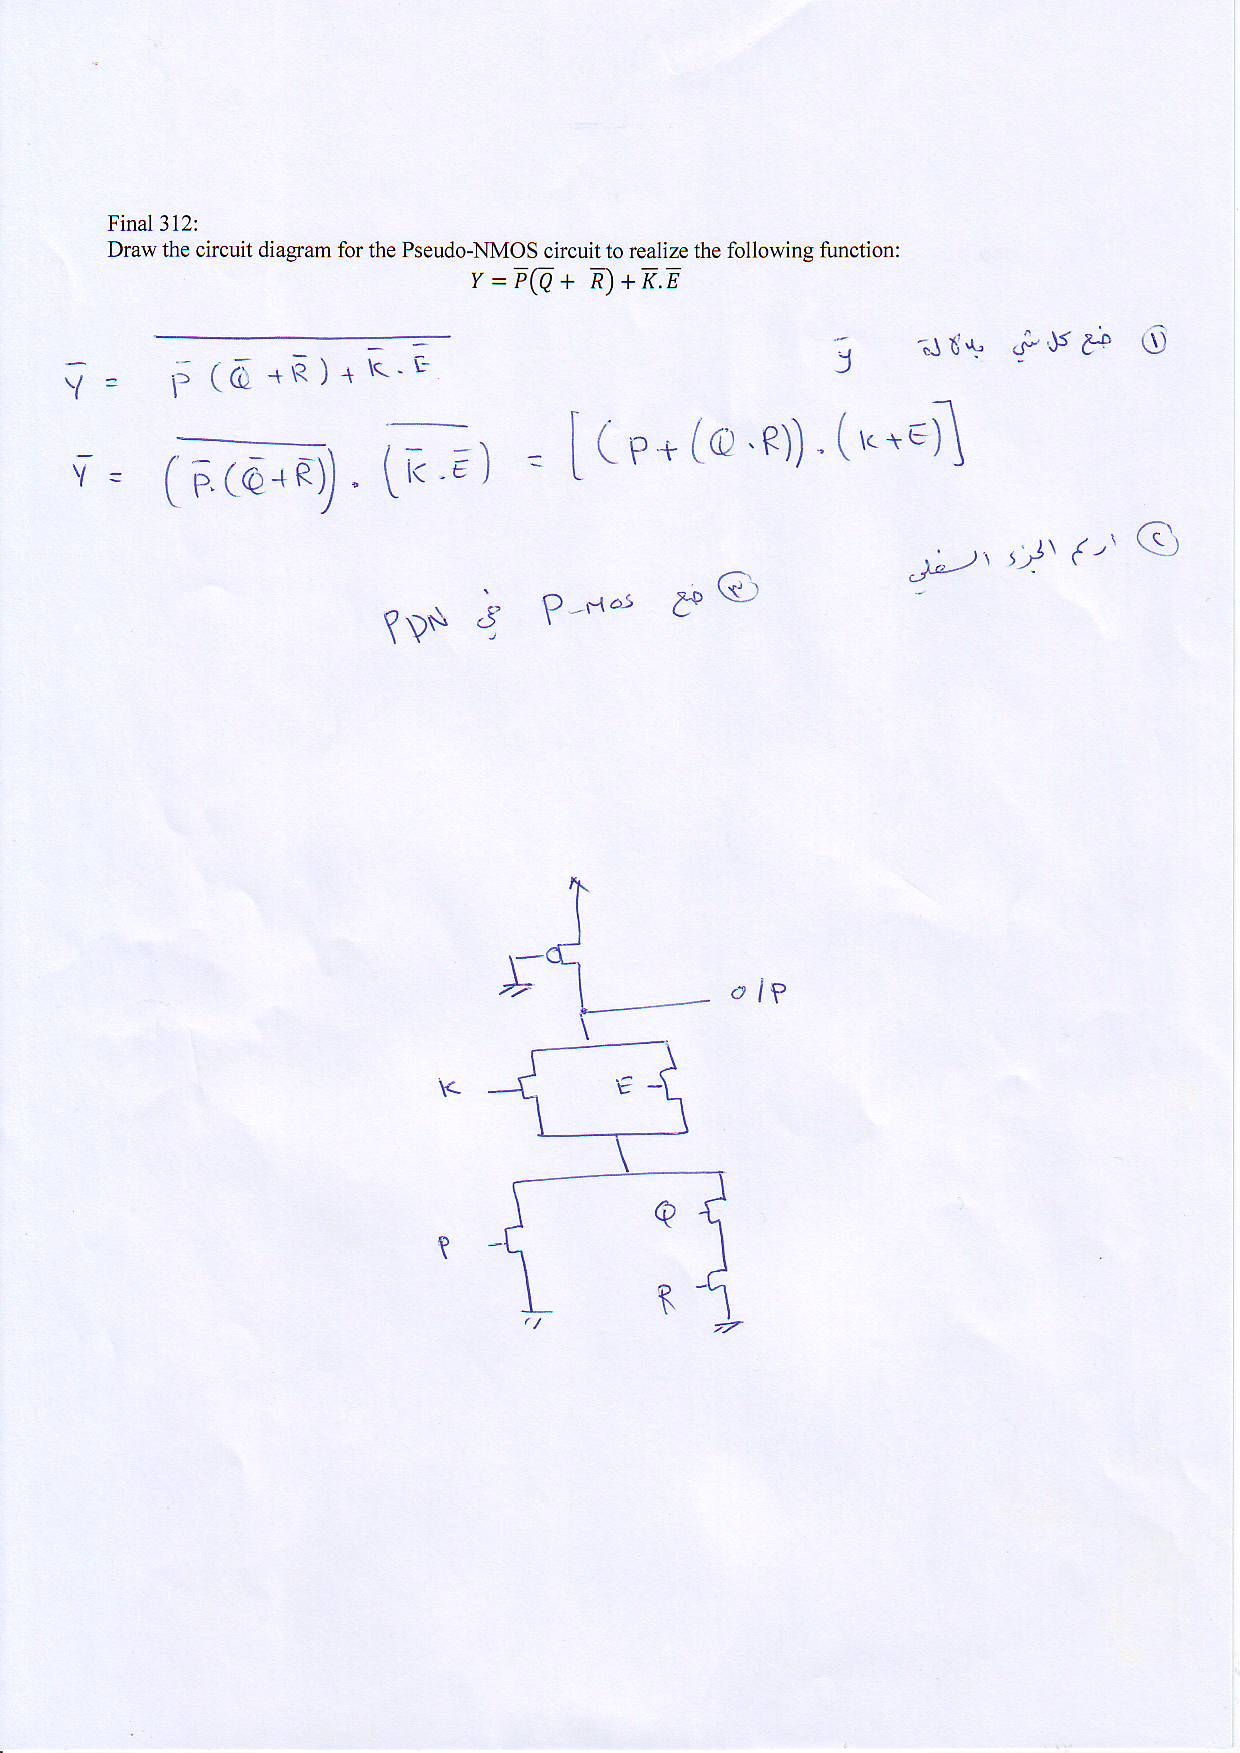 Final 312:
Draw the circuit diagram for the Pseudo-NMOS circuit to realize the following function:
Y = P̅(Q̅ + R̅) + K̅.E̅
① ضع كل شي بدلالة y̅
Y̅ = \overline{P̅ (Q̅ + R̅) + K̅ . E̅}
Y̅ = (\overline{P̅.(Q̅+R̅)}) . (\overline{K̅ . E̅}) = [(P+(Q.R)).(K+E)]
② ارسم الجزء السفلي
③ ضع P-MOS في PDN
O/P
K E
P Q
R